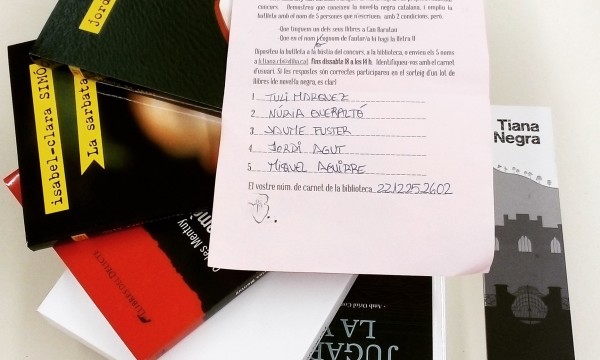 concurs. Demostreu que coneixeu la novel·la negra catalana, i ompliu la
butlleta amb el nom de 5 persones que n'escriuen, amb 2 condicions, però:
Que tinguem un dels seus llibres a Can Baratau
Que en el nom i cognom de l'autor/a hi hagi la lletra U
Dipositeu la butlleta a la bústia del concurs, a la biblioteca, o envieu els 5 noms
fins dissabte 18 a les 14 h. Identifiqueu-vos amb el carnet
d'usuari. Si les respostes son correctes participareu en el sorteig d'un lot de
llibres (de novel·la negra, és clar)
1 TULI MARQUEZ
2 NÚRIA QUERALTÓ
3 JAUME FUSTER
4 JORDI AGUT
5 MIQUEL AGUIRRE
El vostre núm. de carnet de la biblioteca 2212252602
jord
isabel-clara SIMÓ
La sarbata
les Mentuy
LLIBRES DEL DELICTE
JUGAR
LA V
Tiana
Negra